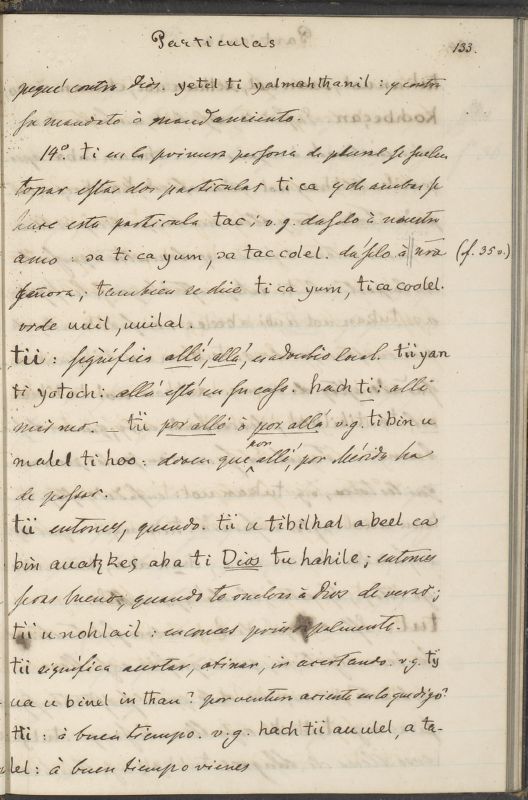 Particulas
133.
pequé contra Dios. yetel ti yalmahthanil: y contra
su mandato ò mandamiento.
19º. ti en la primera persona de plural se suelen
topar estas dos particulas ti ca y de ambas se
hace esta particula tac; v.g. daselo à nuestro
amo: ɔa ti ca yum, ɔa tac colel. daselo à nr̃a (f. 35 v.)
señora; tambien se dice ti ca yum, ti ca coolel.
vide uuil, uuilal.
tii: significa alli, allá, es adverbio local. tii yan
ti yotoch: allá está en su casa. hach ti: alli
mismo. tii por allí ò por allá v.g. ti bin u
malel ti hoo: dicen que por allá, por Mérida ha
de pasar.
tii entonces, quando. tii u tibilhal a beel ca
bin auatꜩkeç aba ti Dios tu hahile; entonces
seras bueno, quando te vuelvas à Dios de veras;
tii u nohlail: entonces principalmente.
tii significa acertar, atinar, ir acertando. v.g. tij
ua u binel in than? por ventura acierto en lo que digo?
tii: à buen tiempo. v.g. hach tii au ulel, a ta-
lel: à buen tiempo vienes